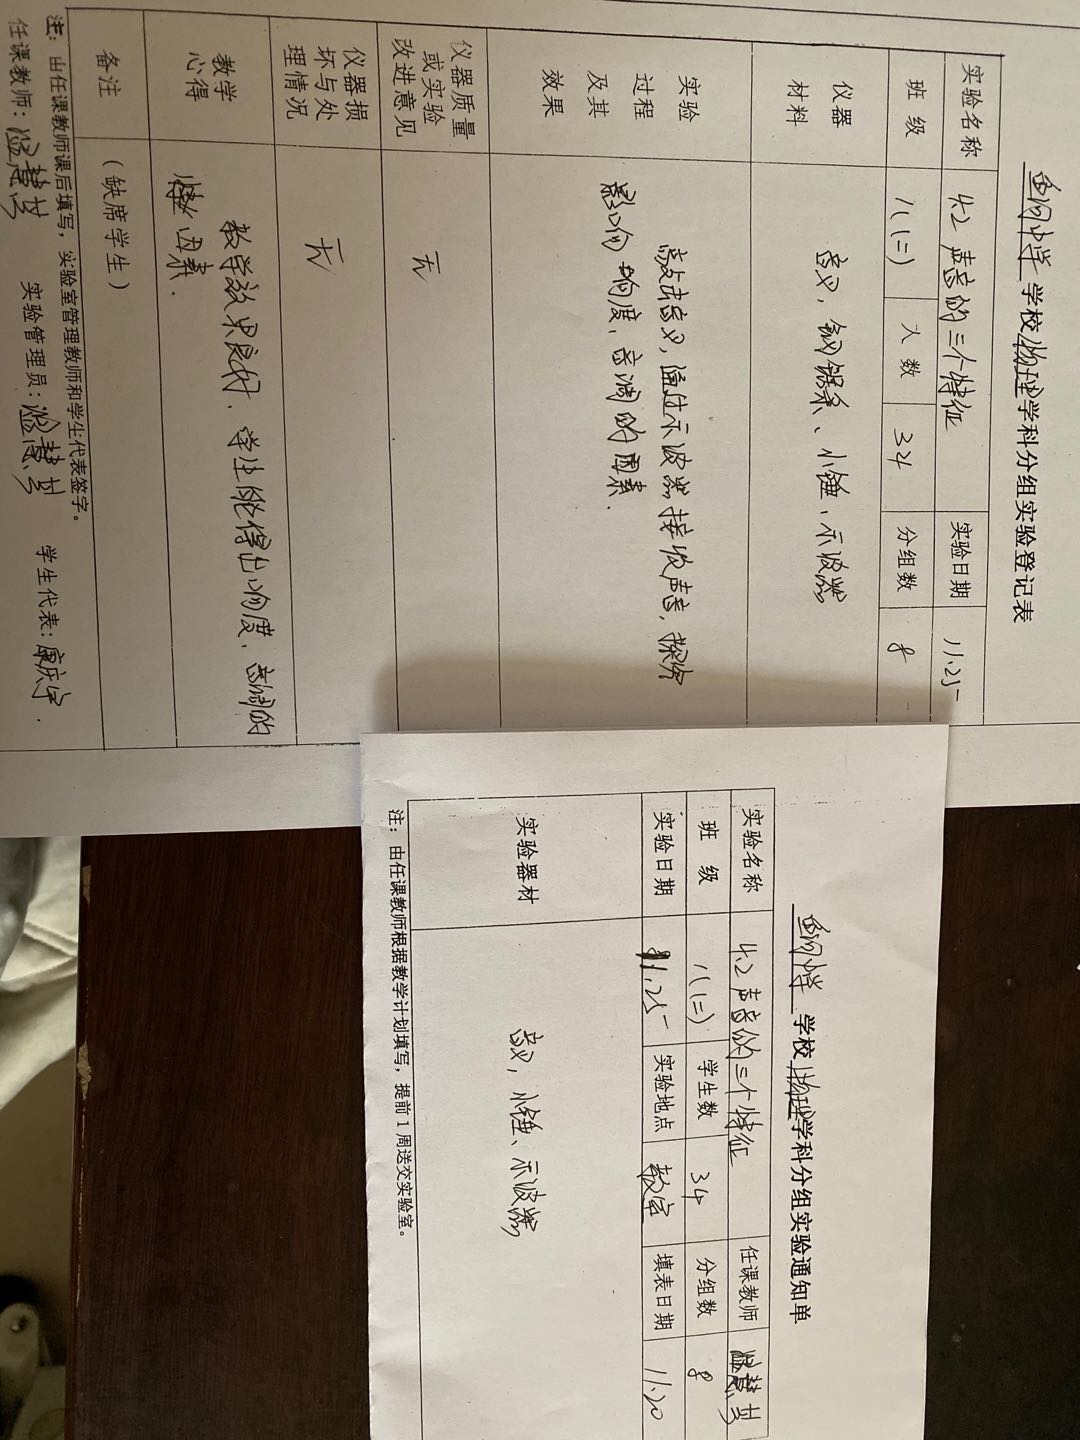 鱼河中学学校物理学科分组实验登记表
实验名称 4.2 声音的三个特征 实验日期 11.25
班 级 八(二) 人 数 34 分组数 8
仪器材料 音叉，钢锯条、小锤，示波器
实验过程及其效果 敲击音叉，通过示波器接收声音，探究
影响响度、音调的因素.
仪器质量或实验改进意见 无
仪器损坏与处理情况 无
教学心得 教学效果良好．学生能得出响度、音调的
因素．
备注 （缺席学生）
注：由任课教师课后填写，实验室管理教师和学生代表签字。
任课教师： 实验管理员： 学生代表：康庆宇．
鱼河中学 学校物理学科分组实验通知单
实验名称 4.2 声音的三个特征 任课教师
班 级 八(二) 学生数 34 分组数 8
实验日期 11.25 实验地点 教室 填表日期 11.20
实验器材 音叉，小锤、示波器
注：由任课教师根据教学计划填写，提前1周送交实验室。